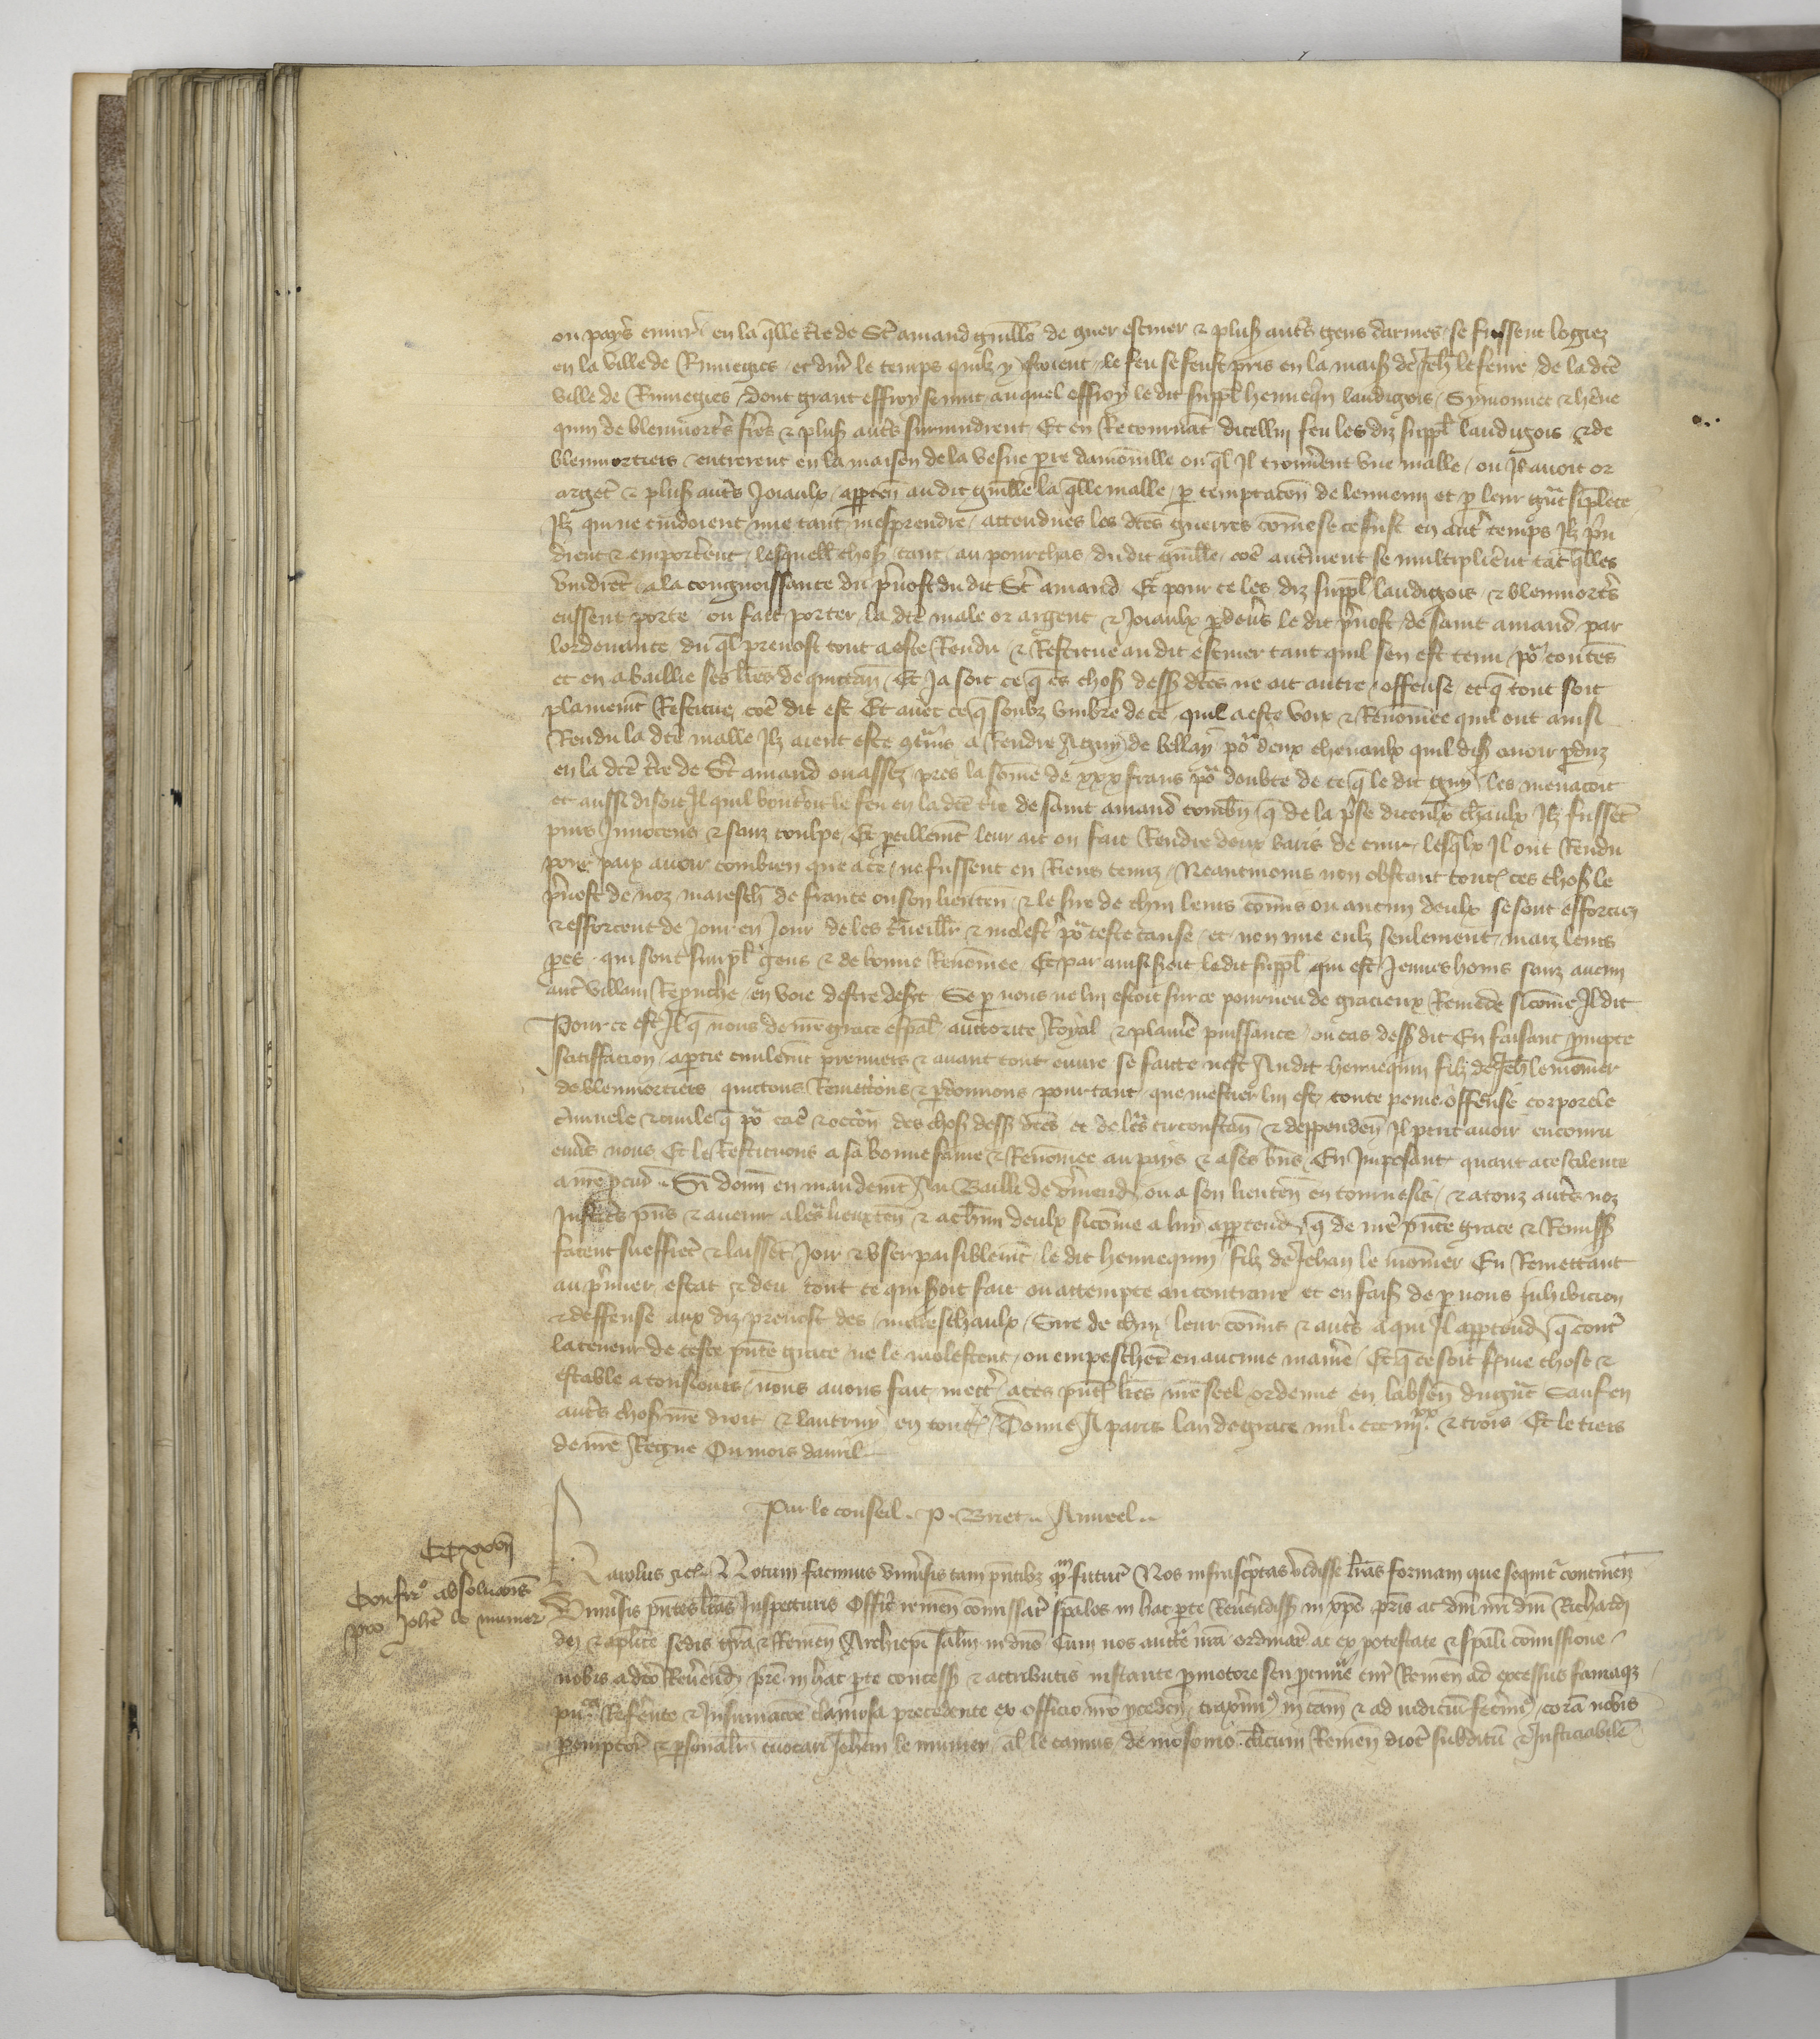 ou pays enuir en la qlle tre de St amand guille de guer escuier & pluss autrs gens darmes se fussent logiez
en la ville de Rumegies et dur le temps quilz y estoient le feu se feust pris en la mais de Jeh lefeure de la dce
ville de Rumegies dont grant effroy se mut auquel effroy le dit suppl hennequin laudigois Symonnet & henne
quin de blenmortrs freres & pluss autrs suruindrent Et en Retournat dicellui feu les diz suppl laudigois & de
blenmortiers entrerent en la maison de la vesue pre damouille ou ql Il trouuerent vne malle ou Il auoit or
arget & pluss autrs Joiaulx apparten au dit guille la qlle malle p temptacon de lennemi et p leur gnt simplece
Ilz qui ne cuidoient mie tant mesprendre attendues les dces guerres come se ce fust en autr temps Ilz prin
drent & emporterent lesquell choss tant au pourchas du dit guille coe autrement se multiplierent tat qlles
vindret a la congnoissance du preuost du dit St amand Et pour ce les diz suppl laudigois & blenmortrs
eussent porte ou fait porter la dce male or argent & Joiaulx pdeuers le dit preuost de saint amand par
lordenance du ql preuost tout a este Rendu & Restitue au dit escuier tant quil sen est tenu por contes
et en a baillie ses lres de quittan Et Ja soit ce q es choss dess dces ne ait autre offense et q tout soit
plainemt Restitue coe dit est Et auec ce q soubz vmbre de ce quil a este voix & Renomee quil ont ainsi
Rendu la dce malle Ilz aient este gtrains a Rendre A guy de bellay por deux cheuaulx quil diss auoir pduz
en la dce tre de St amand ou assez pres la some de xxx frans por doubte de ce q le dit guy les menacoit
et aussi disoit Il quil bouteroit le feu en la dce tre de saint amand combn q de la prse diceulx chaulx Ilz fusset
purs Innocens & sanz coulpe Et pareillemt leur ait on fait Rendre deux baris de cuir lesqlx Il ont Rendu
pour paix auoir combien que a ce ne fussent en Riens tenuz Neantmoins non obstant toutes ces choss le
preuost de noz mareschx de france ou son lieuten & le sire de chin leurs commis ou aucun deulx se sont efforciez
& efforcent de Jour en Jour de les traueillr & molestr por ceste cause et non mie eulz seulement maiz leurs
peres qui sont simpl gens & de bonne Renomee Et par ainsi seroit ledit suppl qui est Jeunes homs sanz aucun
autr villain Repruche en voie destre desert Se p nous ne lui estoit sur ce pourueu de gracieux Remede sicome Il dit
Pour ce est Il q nous de nre grace especal auctorite Royal & plaine puissance ou cas dess dit En faisant prompte
satisfacion a partie ciuilemt premiers & auant tout euure se faicte nest Au dit hennequin filz de Jeh le monnier
de blenmortiers quittons Remettons & pdonnons pour tant que mestier lui est toute peine offense corporele
criminele & ciuile q por cae & occon des choss dess dces et de lers circonstan & deppenden Il peut auoir encouru
enuers nous Et le Restituons a sa bonne fame & Renomee au pays & a ses biens En Imposant quant a ce silence
a nre pcur Si donn en mandemt Au Bailli de vrmend ou a son lieuten en tournesis & a touz autrs noz
Justicrs pns & auenir a lers lieuxten & a chun deulx sicome a lui appartendr q de nre pnte grace & Remiss
facent sueffret & laisset Joir & vser paisiblemt le dit hennequin filz de Jehan le monnier En Remettant
au premier estat & deu tout ce qui seroit fait ou attempte au contraire et en faiss de p nous Inhibicion
& deffense aux diz preuost des mareschaulx Sire de chin leur commis & autrs a qui Il appartendr q contr
la teneur de ceste pnte grace ne le molestent ou empeschet en aucune manre Et q ce soit ferme chose &
estable a tousiours nous auons fait mettr a ces pntes lres nre seel ordene en labsen du grant Sauf en
autrs choss nre droit & lautruy en toutes Donne A paris lan de grace mil ccc iiij xx & trois Et le tiers
de nre Regne Ou mois dauril
Par le conseil . P . Briet .. Anneel ..
CCxxvij
Confirmo absolucois
pro Johe le munier
Karolus &c Notum facimus vniuersis tam pntibz qm futur Nos infrascrptas vidisse lras formam que sequitr continen
Vniuersis pntes lras Inspecturis Offic remen comissar spales in hac parte Reuendiss in xpo pris ac dni nri dni Richardi
dei & aplice sedis gra Remen Archiepi salm in dno Cum nos auctte nra ordinar ac ex potestate & spali comissione
nobis a dco Reuerend pre in hac pte concess & attributis instante pmotore seu pcure curie Remen ad excessus famaqz
pua Referente & Insinuacoe clamosa precedente ex officio nro pceden traxerimo in cam & ad iudicium fecerimo cora nobis
peremptor & psonalr euocari Johem le munier al le camus de mosomo clicum Remen dioc subditu & Justiciabile